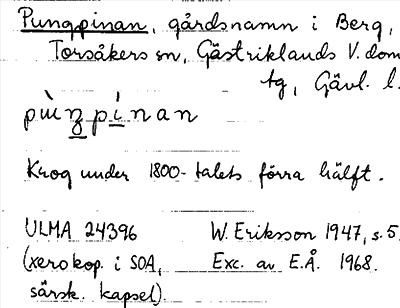 Pungpinan, gårdsnamn i Berg,
Torsåkers sn, Gästriklands V. dom
tg, Gävl. l.
Krog under 1800-talets förra hälft.
ULMA 24396 W. Eriksson 1947, s. 5.
(xerokop. i SOA, Exc. av E.Å. 1968.
särsk. kapsel).